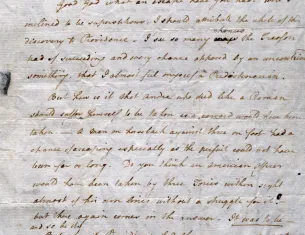 Good God what an escape have you had were I
inclined to be superstitious, I should attribute the whole of this
discovery to Providence. I see so many chances the Treason
had of succeeding and every chance opposed by an
something, that I almost feel myself a Predestinarian.
But how is it that Andre who died like a Roman
should suffer himself to be taken as a coward would have been
taken. A man on horseback against three on foot had a
chance of escaping especially as the pursuit could not have
been far or long. Do you think an American officer
would have been taken by three Tories within sight
almost of his own lines without a struggle for it?
but there again comes in the answer. It was to be
and so be it